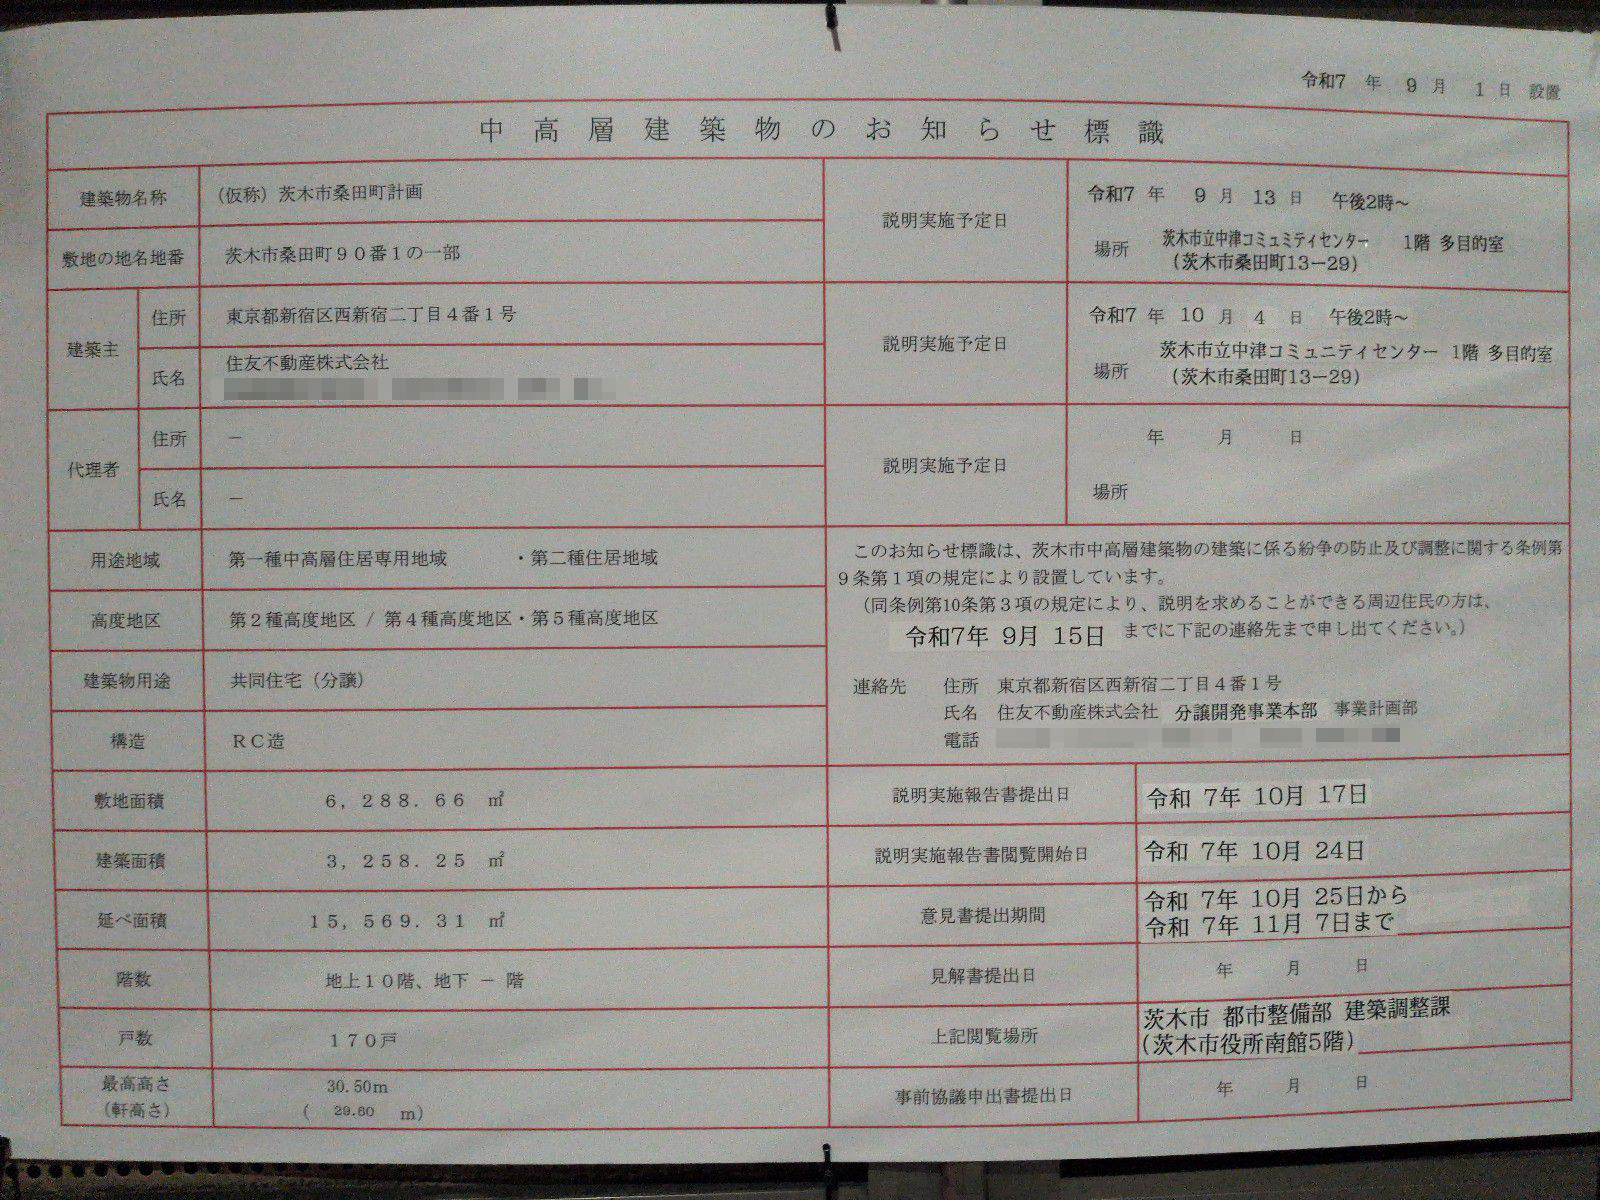 令和7 年 9 月 1 日 設置
中高層建築物のお知らせ標識
建築物名称 (仮称) 茨木市桑田町計画
敷地の地名地番 茨木市桑田町90番1の一部
建築主 住所 東京都新宿区西新宿二丁目4番1号
氏名 住友不動産株式会社
代理者 住所 －
氏名 －
用途地域 第一種中高層住居専用地域 ・第二種住居地域
高度地区 第2種高度地区 / 第4種高度地区・第5種高度地区
建築物用途 共同住宅 (分譲)
構造 RC造
敷地面積 6,288.66 ㎡
建築面積 3,258.25 ㎡
延べ面積 15,569.31 ㎡
階数 地上10階、地下 － 階
戸数 170戸
最高高さ 30.50m
(軒高さ) ( 29.60 m)
説明実施予定日 令和7 年 9 月 13 日 午後2時～
場所 茨木市立中津コミュミティセンター 1階 多目的室
(茨木市桑田町13－29)
説明実施予定日 令和7 年 10 月 4 日 午後2時～
場所 茨木市立中津コミュニティセンター 1階 多目的室
(茨木市桑田町13－29)
説明実施予定日 年 月 日
場所
このお知らせ標識は、茨木市中高層建築物の建築に係る紛争の防止及び調整に関する条例第
9条第1項の規定により設置しています。
(同条例第10条第3項の規定により、説明を求めることができる周辺住民の方は、
令和7年 9月 15日 までに下記の連絡先まで申し出てください。)
連絡先 住所 東京都新宿区西新宿二丁目4番1号
氏名 住友不動産株式会社 分譲開発事業本部 事業計画部
電話
説明実施報告書提出日 令和 7年 10月 17日
説明実施報告書閲覧開始日 令和 7年 10月 24日
意見書提出期間 令和 7年 10月 25日から
令和 7年 11月 7日まで
見解書提出日 年 月 日
上記閲覧場所 茨木市 都市整備部 建築調整課
(茨木市役所南館5階)
事前協議申出書提出日 年 月 日